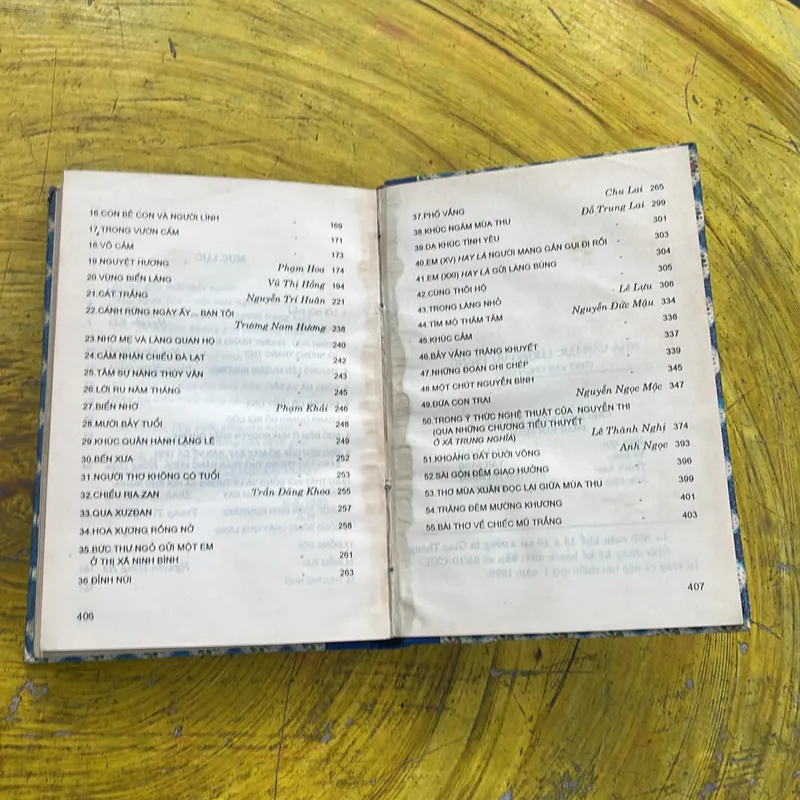 16.CON BÊ CON VÀ NGƯỜI LÍNH " 169
17.TRONG VƯỜN CẤM " 171
18.VÔ CẢM " 173
19.NGUYỆT HƯƠNG Phạm Hoa 174
20.VÙNG BIỂN LẶNG Vũ Thị Hồng 194
21.CÁT TRẮNG Nguyễn Trí Huân 221
22.CÁNH RỪNG NGÀY ẤY... BẠN TÔI
Trương Nam Hương 238
23.NHỚ MẸ VÀ LÀNG QUAN HỌ " 240
24.CẢM NHẬN CHIỀU ĐÀ LẠT " 242
25.TÂM SỰ NÀNG THÚY VÂN " 243
26.LỜI RU NĂM THÁNG " 245
27.BIỂN NHỚ Phạm Khải 246
28.MƯỜI BẢY TUỔI " 248
29.KHÚC QUÂN HÀNH LẶNG LẼ " 249
30.BẾN XƯA " 252
31.NGƯỜI THƠ KHÔNG CÓ TUỔI " 253
32.CHIỀU RIA ZAN Trần Đăng Khoa 255
33.QUA XUZĐAN " 257
34.HOA XƯƠNG RỒNG NỞ " 258
35.BỨC THƯ NGỎ GỬI MỘT EM
Ở THỊ XÃ NINH BÌNH " 261
36.ĐỈNH NÚI " 263
406
37.PHỐ VẮNG Chu Lai 265
38.KHÚC NGẪM MÙA THU Đỗ Trung Lai 299
39.DẠ KHÚC TÌNH YÊU " 301
40.EM (XV) HAY LÀ NGƯỜI MANG GẦN GỤI ĐI RỒI " 303
41.EM (XXI) HAY LÀ GỬI LÀNG BÙNG " 304
42.CÙNG THÔI HỘ " 305
43.TRONG LÀNG NHỎ Lê Lựu 306
44.TÌM MỘ THÂM TÂM Nguyễn Đức Mậu 334
45.KHÚC CẢM " 336
46.BẢY VẦNG TRĂNG KHUYẾT " 337
47.NHỮNG ĐOẠN GHI CHÉP " 339
48.MỘT CHÚT NGUYÊN BÌNH " 345
49.ĐỨA CON TRAI Nguyễn Ngọc Mộc 347
50.TRONG Ý THỨC NGHỆ THUẬT CỦA NGUYỄN THI
(QUA NHỮNG CHƯƠNG TIỂU THUYẾT
Ở XÃ TRUNG NGHĨA) Lê Thành Nghị 374
51.KHOẢNG ĐẤT DƯỚI VÒNG Anh Ngọc 393
52.SÀI GÒN ĐÊM GIAO HƯỞNG " 396
53.THƠ MÙA XUÂN ĐỌC LẠI GIỮA MÙA THU " 399
54.TRĂNG ĐÊM MƯỜNG KHƯƠNG " 401
55.BÀI THƠ VỀ CHIẾC MŨ TRẮNG " 403
407